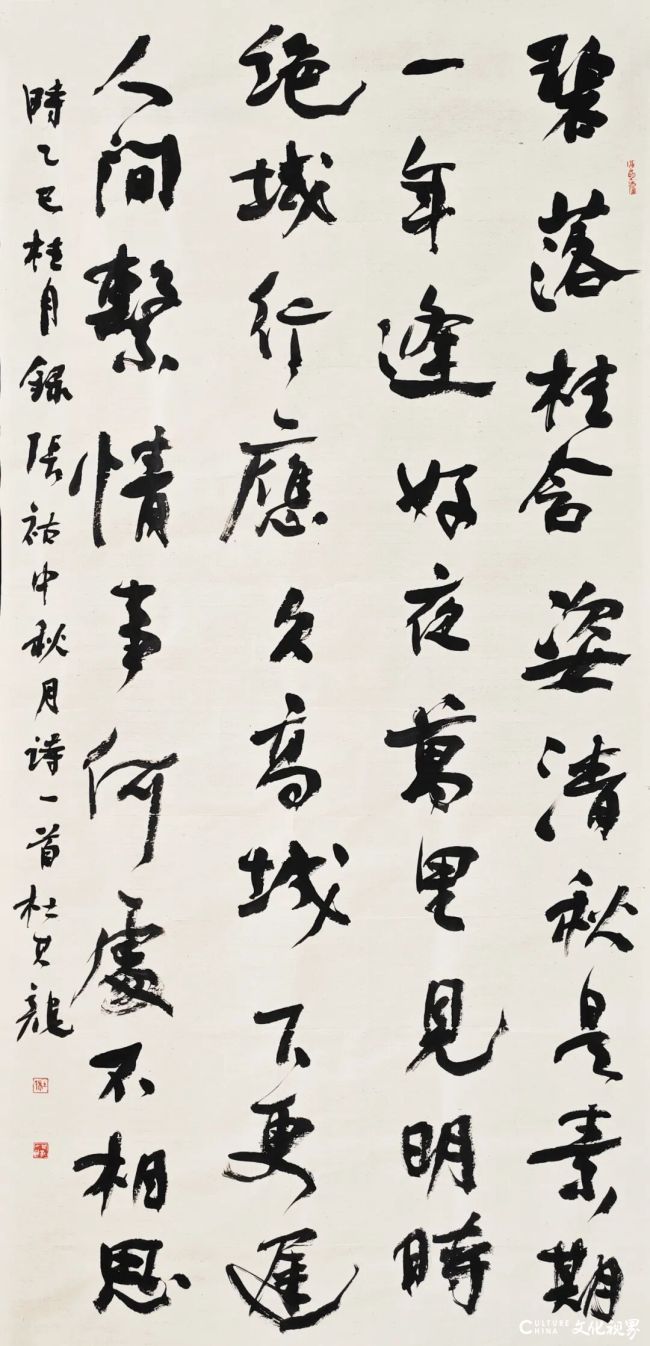 碧落桂含姿清秋是素期
一年逢好夜萬里見明時
绝域行應久高城下更遲
人間繫情事何處不相思
時乙巳桂月録張祜中秋月詩一首杜
龍
CULTURE CHINA 文化视界